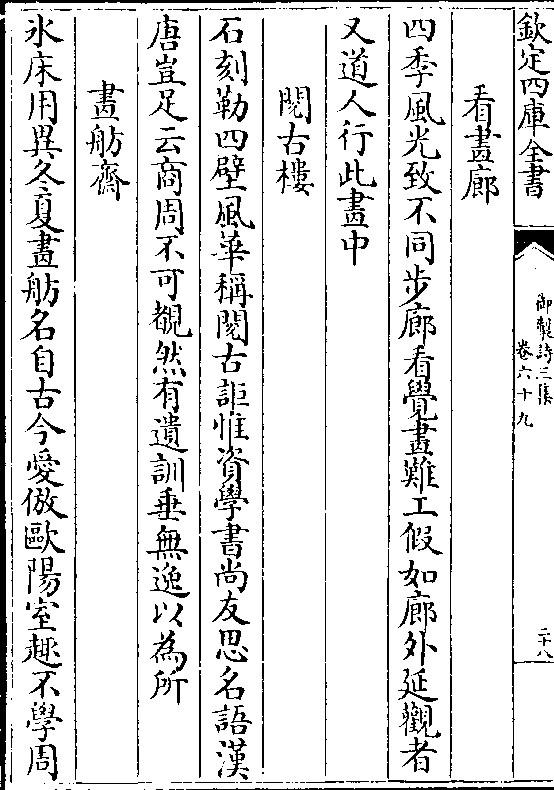 欽定四庫全書
御製詩三集
卷六十九
二十八
看畫廊
四季風光致不同步廊看覺畫難工假如廊外延觀者
又道人行此畫中
閱古樓
石刻勒四壁風華稱閱古詎惟資學書尚友思名語漢
唐豈足云商周不可覩然有遺訓垂無逸以為所
畫舫齋
氷床用異冬夏畫舫名自古今愛倣歐陽室趣不學周